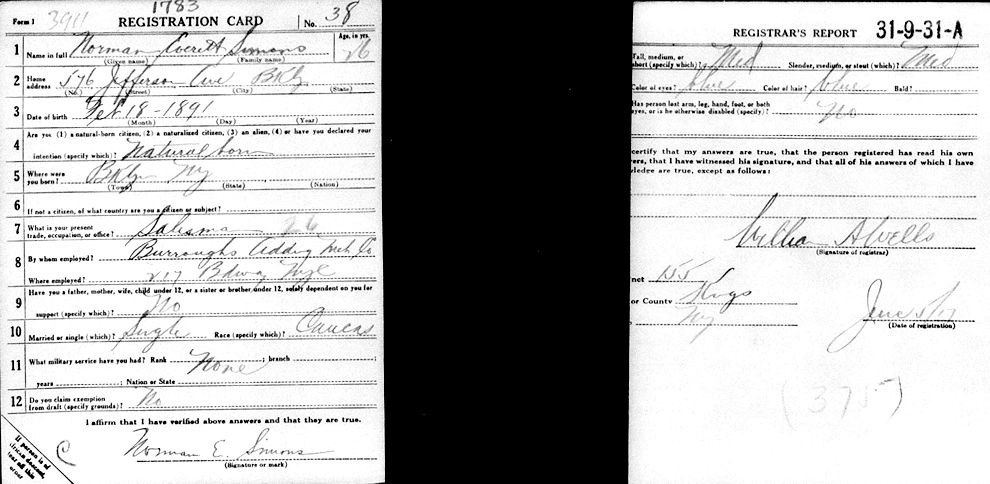 1783
Form 1 3911 REGISTRATION CARD No. 38
1 Name in full Norman Everett Simons Age, in yrs. 26
(Given name) (Family name)
2 Home address 576 Jefferson Ave Bklyn
(No.) (Street) (City) (State)
3 Date of birth Feb 18 - 1891
(Month) (Day) (Year)
Are you (1) a natural-born citizen, (2) a naturalized citizen, (3) an alien, (4) or have you declared your
4 intention (specify which)? Natural born
5 Where were you born? Bklyn Ny
(Town) (State) (Nation)
6 If not a citizen, of what country are you a citizen or subject?
7 What is your present trade, occupation, or office? Salesma 26
8 By whom employed? Burroughs Adding Mch Co
Where employed? 217 Bdway Nyc
9 Have you a father, mother, wife, child under 12, or a sister or brother under 12, solely dependent on you for
support (specify which)? No
10 Married or single (which)? Single Race (specify which)? Caucas
11 What military service have you had? Rank None ; branch ;
years ; Nation or State
12 Do you claim exemption from draft (specify grounds)? No
I affirm that I have verified above answers and that they are true.
C Norman E. Simons
(Signature or mark)
If person is of
REGISTRAR'S REPORT 31-9-31-A
Tall, medium, or short (specify which)? Med Slender, medium, or stout (which)? Med
Color of eyes? blue Color of hair? blue Bald?
Has person lost arm, leg, hand, foot, or both
eyes, or is he otherwise disabled (specify)? No
certify that my answers are true, that the person registered has read his own
ers, that I have witnessed his signature, and that all of his answers of which I have
ledge are true, except as follows:
William A Wells
(Signature of registrar)
nct 155
or County Kings
Ny
June 5/17
(Date of registration)
(375)